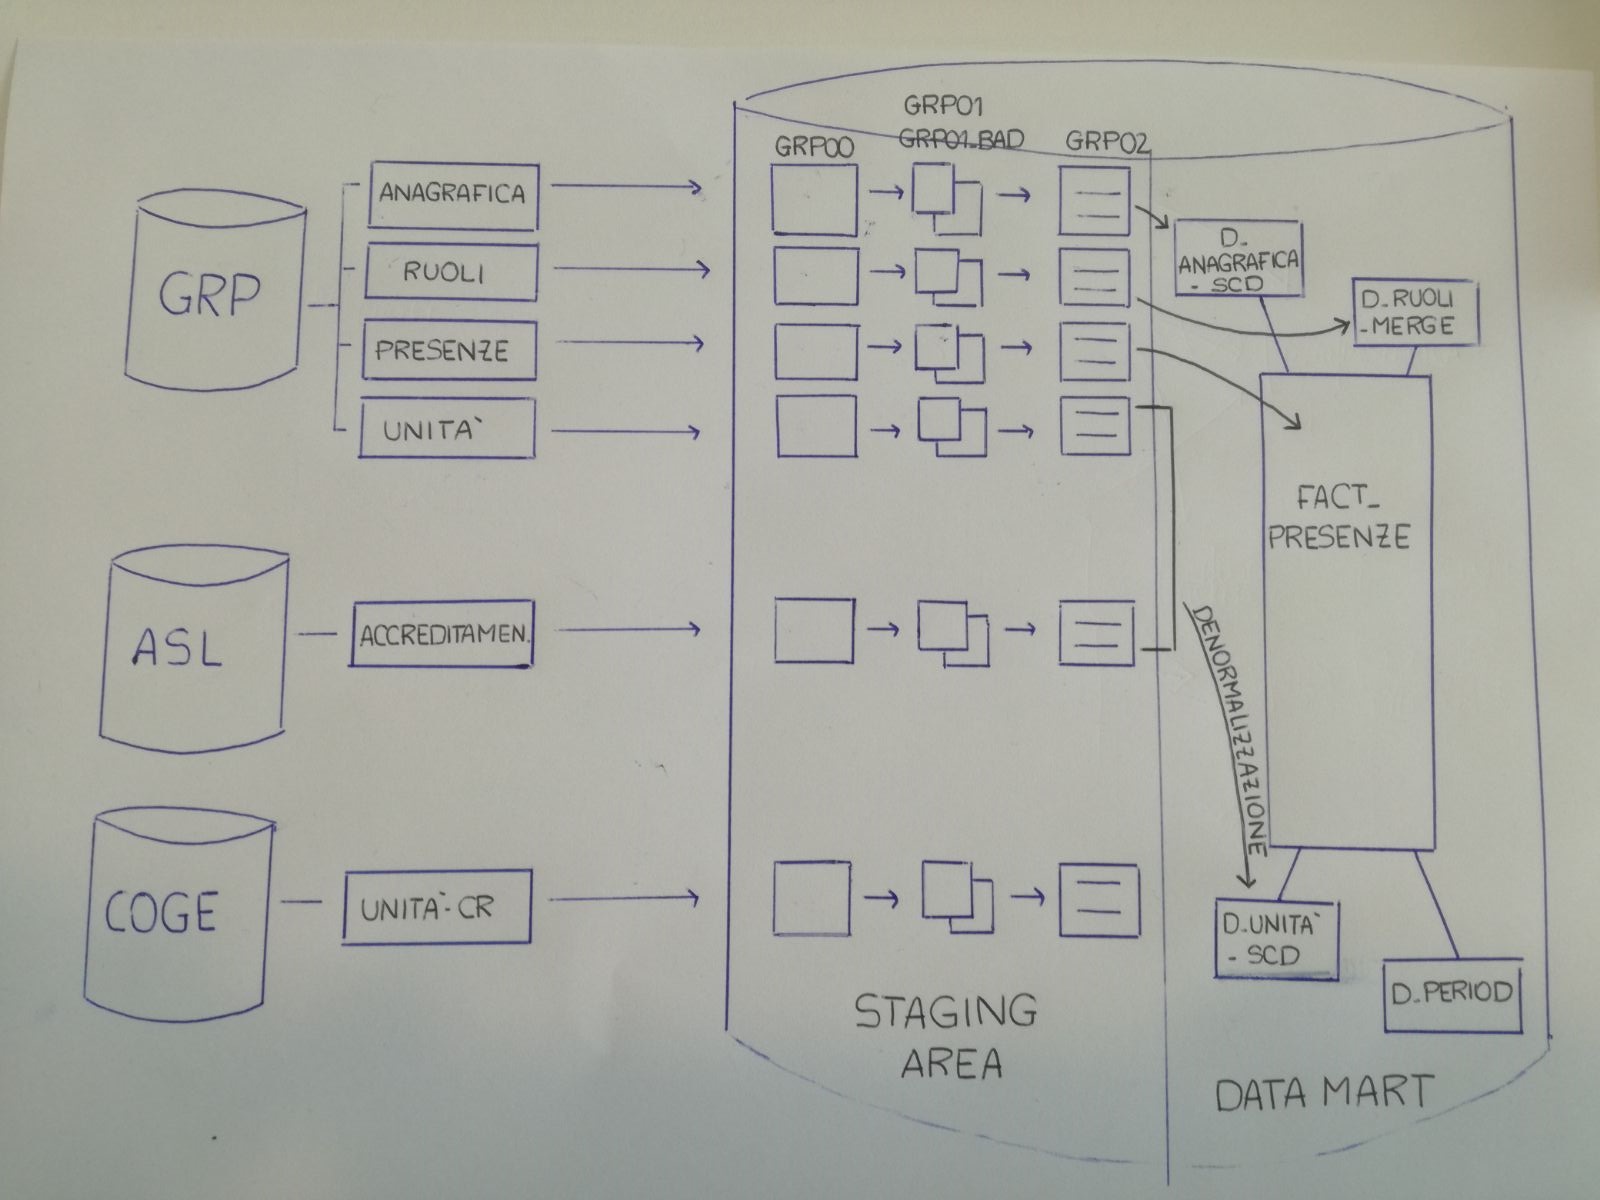 GRP
ANAGRAFICA
RUOLI
PRESENZE
UNITÀ
ASL
ACCREDITAMEN.
COGE
UNITÀ-CR
GRP00
GRP01
GRP01-BAD
GRP02
STAGING
AREA
D_
ANAGRAFICA
- SCD
D_RUOLI
-MERGE
FACT_
PRESENZE
DENORMALIZZAZIONE
D_UNITÀ
- SCD
D_PERIOD
DATA MART